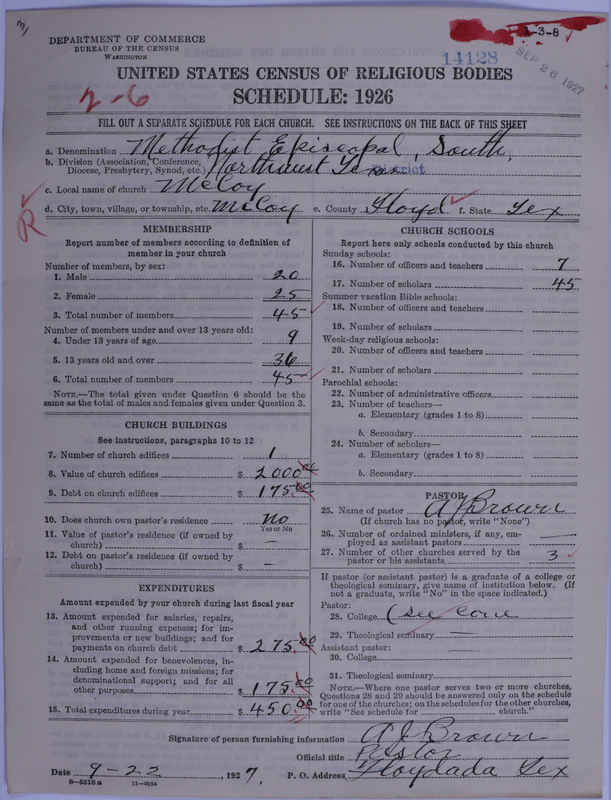 DEPARTMENT OF COMMERCE
BUREAU OF THE CENSUS
WASHINGTON
1-3-8
14128
SEP 26 1927
UNITED STATES CENSUS OF RELIGIOUS BODIES
2-6
SCHEDULE: 1926
FILL OUT A SEPARATE SCHEDULE FOR EACH CHURCH. SEE INSTRUCTIONS ON THE BACK OF THIS SHEET
a. Denomination Methodist Episcopal, South,
b. Division (Association, Conference, Diocese, Presbytery, Synod, etc.) Northwest Texas District
c. Local name of church McCoy
d. City, town, village, or township, etc. McCoy e. County Floyd f. State Tex
R
MEMBERSHIP
Report number of members according to definition of
member in your church
Number of members, by sex:
1. Male 20
2. Female 25
3. Total number of members 45
Number of members under and over 13 years old:
4. Under 13 years of age 9
5. 13 years old and over 36
6. Total number of members 45
NOTE.—The total given under Question 6 should be the
same as the total of males and females given under Question 3.
CHURCH BUILDINGS
See instructions, paragraphs 10 to 12
7. Number of church edifices 1
8. Value of church edifices $ 2000.00
9. Debt on church edifices $ 175.00
10. Does church own pastor's residence No
Yes or No
11. Value of pastor's residence (if owned by
church) $ —
12. Debt on pastor's residence (if owned by
church) $ —
EXPENDITURES
Amount expended by your church during last fiscal year
13. Amount expended for salaries, repairs,
and other running expenses; for im-
provements or new buildings; and for
payments on church debt $ 275.00
14. Amount expended for benevolences, in-
cluding home and foreign missions; for
denominational support; and for all
other purposes $ 175.00
15. Total expenditures during year $ 450.00
CHURCH SCHOOLS
Report here only schools conducted by this church
Sunday schools:
16. Number of officers and teachers 7
17. Number of scholars 45
Summer vacation Bible schools:
18. Number of officers and teachers
19. Number of scholars
Week-day religious schools:
20. Number of officers and teachers
21. Number of scholars
Parochial schools:
22. Number of administrative officers
23. Number of teachers—
a. Elementary (grades 1 to 8)
b. Secondary
24. Number of scholars—
a. Elementary (grades 1 to 8)
b. Secondary
PASTOR
25. Name of pastor A J Brown
(If church has no pastor, write "None")
26. Number of ordained ministers, if any, em-
ployed as assistant pastors —
27. Number of other churches served by the
pastor or his assistants 3
If pastor (or assistant pastor) is a graduate of a college or
theological seminary, give name of institution below. (If
not a graduate, write "No" in the space indicated.)
Pastor:
28. College (see
29. Theological seminary —
Assistant pastor:
30. College
31. Theological seminary
NOTE.—Where one pastor serves two or more churches,
Questions 28 and 29 should be answered only on the schedule
for one of the churches; on the schedules for the other churches,
write "See schedule for ____ church."
Signature of person furnishing information A J Brown
Official title Pastor
Date 9-22, 1927. P. O. Address Floydada Tex
8-5518a 11-9034